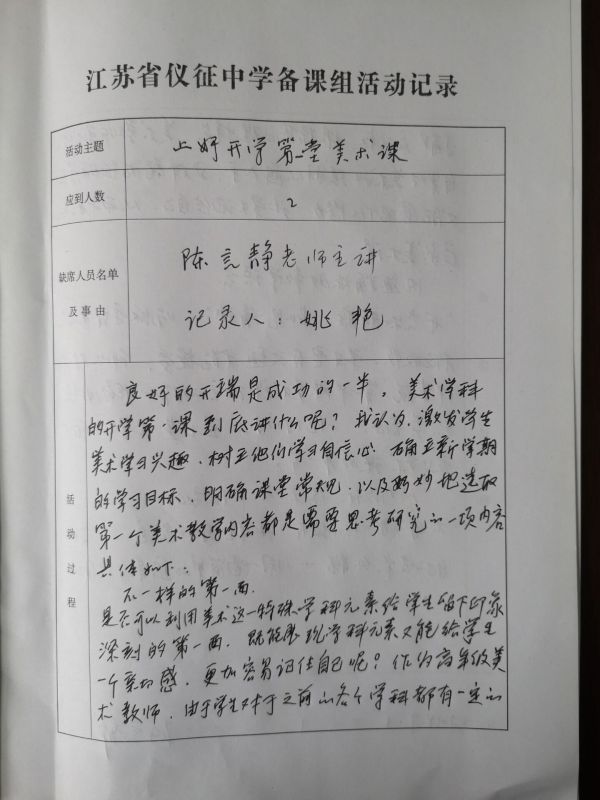 江苏省仪征中学备课组活动记录
活动主题
上好开学第一堂美术课
应到人数
2
缺席人员名单
及事由
陈言静老师主讲
记录人：姚艳
活动过程
良好的开端是成功的一半。美术学科
的开学第一课到底讲什么呢？我认为，激发学生
美术学习兴趣，树立他们学习自信心，确立新学期
的学习目标，明确课堂常规，以及巧妙地选取
第一个美术教学内容都是需要思考研究的一项内容
具体如下：
不一样的第一面.
是否可以利用美术这一特殊学科元素给学生留下印象
深刻的第一面，既能展现学科元素又能给学生
一个亲切感，更加容易记住自己呢？作为高年级美
术教师，由于学生对于之前的各个学科都有一定的